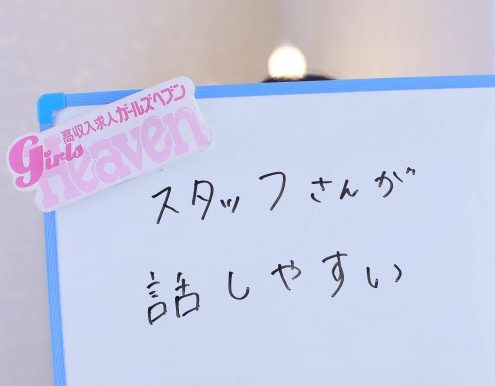 高収入求人ガールズヘブン
Girls Heaven
スタッフさんが
話しやすい